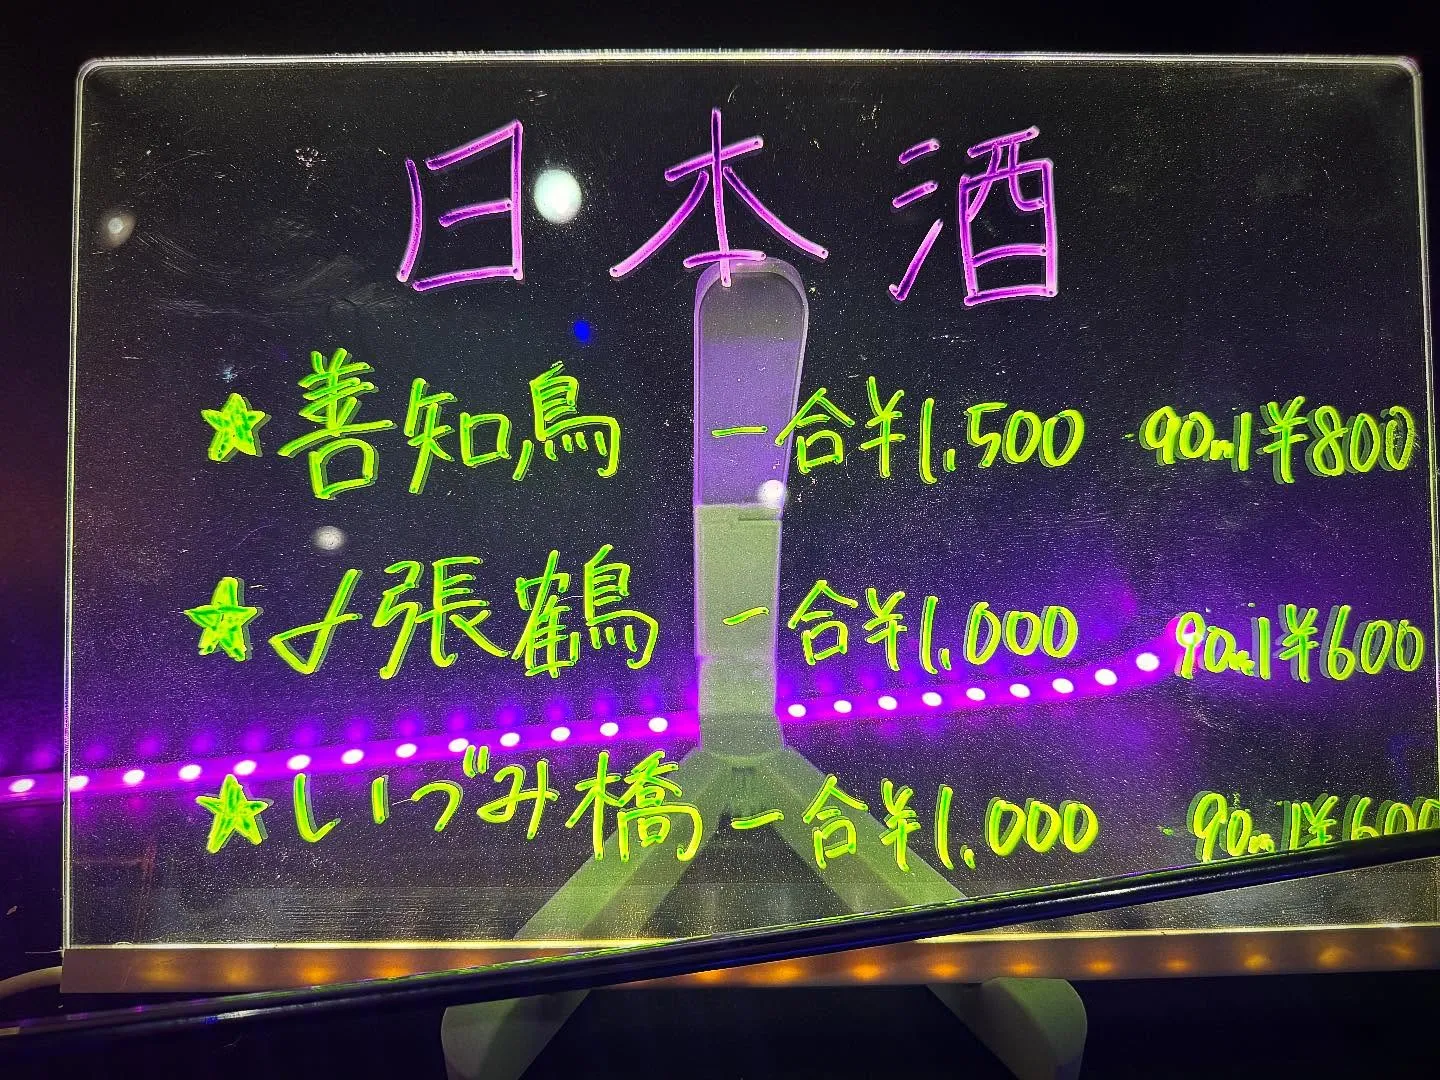 日本酒
★善知鳥 一合¥1,500 90ml¥800
★〆張鶴 一合¥1,000 90ml¥600
★いづみ橋 一合¥1,000 90ml¥600